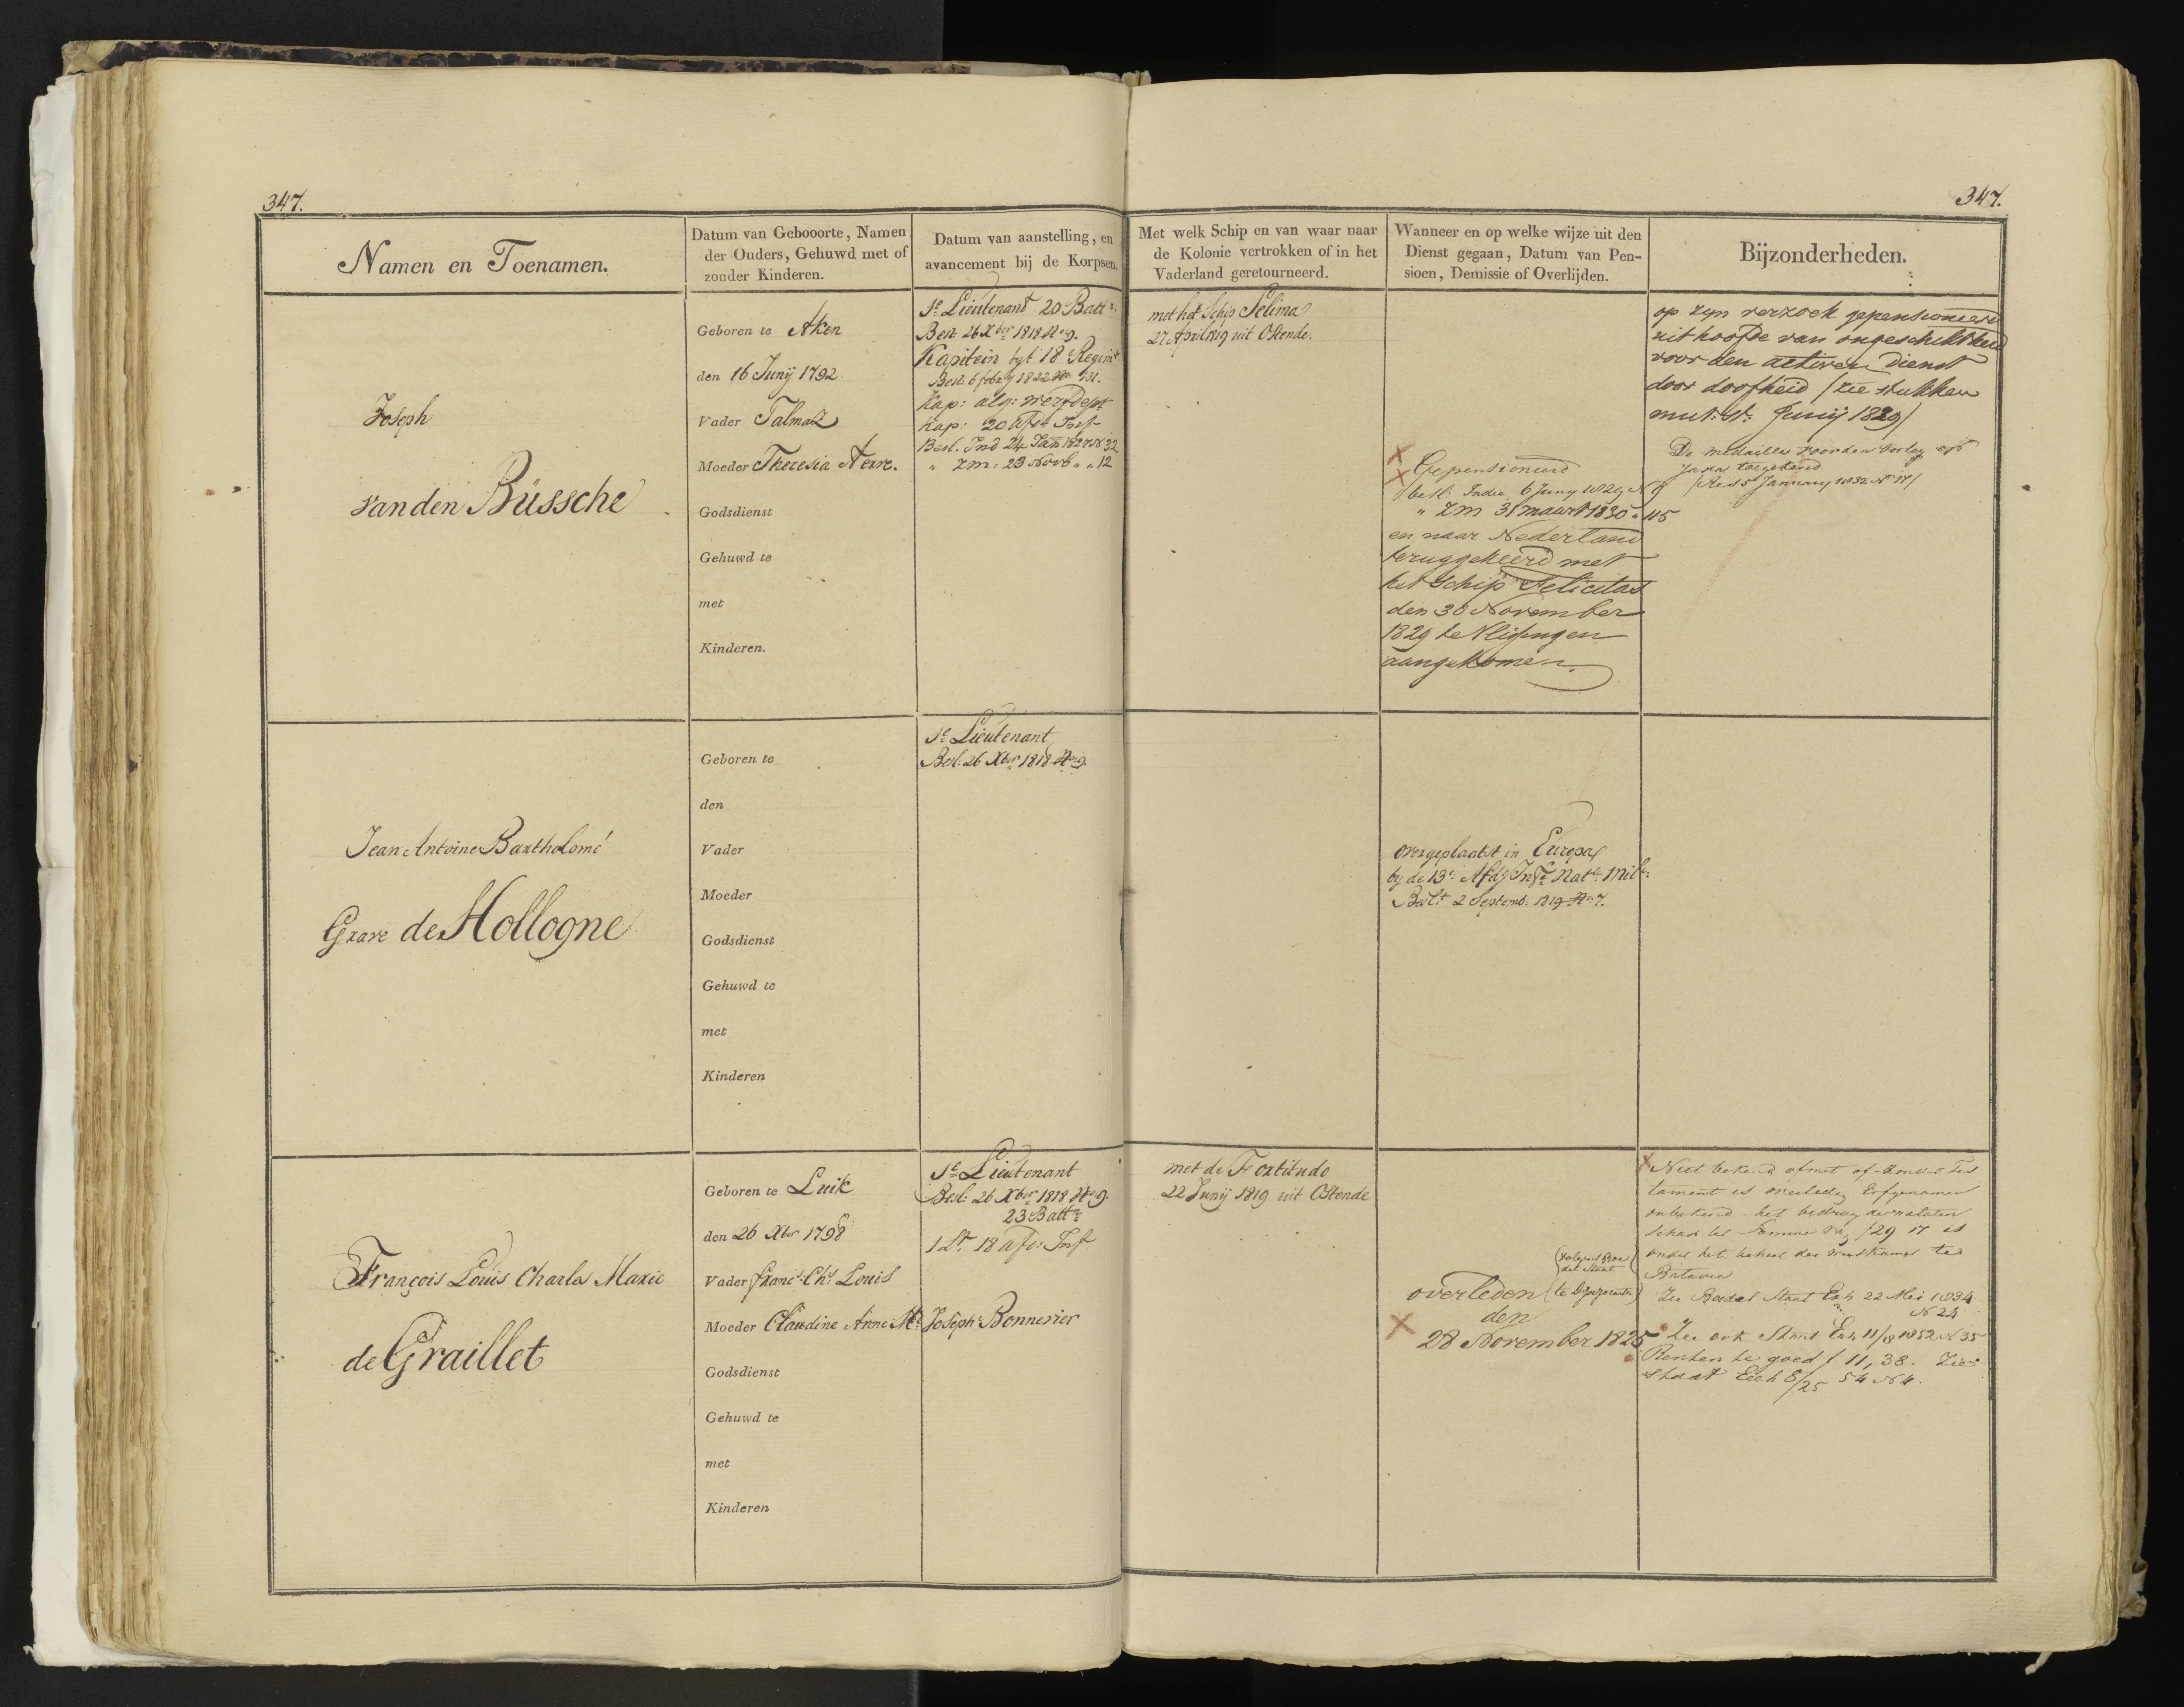 347.
347.
Namen en Toenamen.
Datum van Gebooorte, Namen
der Ouders, Gehuwd met of
zonder Kinderen.
Datum van aanstelling, en
avancement bij de Korpsen.
Met welk Schip en van waar naar
de Kolonie vertrokken of in het
Vaderland geretourneerd.
Wanneer en op welke wijze uit den
Dienst gegaan, Datum van Pen-
sioen, Demissie of Overlijden.
Bijzonderheden.
Joseph
van den Büssche
Geboren te Aken
den 16 Junij 1792
Vader Talmaz
Moeder Theresia
Godsdienst
Gehuwd te
met
Kinderen.
1e Lieutenant 20 Battn.
Besl. 26 Xber 1818 No 9.
Kapitein byt 18 Regimt
Besl. 6 febry 1822 No 131.
Kap: alg: werfdept
Kap: 20 afd Inf
Besl. Ind 24 Jan 1827 N 32
" ZM: 23 Novb " " 12
met het Schip Selima
27 April 1819 uit Ostende.
Gepensioneerd
besl: Indie 6 Juny 1829 N 9
" ZM 31 maart 1830 " 115
en naar Nederland
teruggekeerd met
het Schip Felicitas
den 30 November
1829 te Vlissingen
aangekomen.
op zyn verzoek gepensioneerd
uit hoofde van ongeschiktheid
voor den activen Dienst
door doofheid (zie stukken
mut: st: Junij 1829)
De medaille voor den oorlog op
Java toegekend
(Res 5 January 1832 N 17)
Jean Antoine Bartholomé
Grave de Hollogne
Geboren te
den
Vader
Moeder
Godsdienst
Gehuwd te
met
Kinderen
1e Lieutenant
Besl. 26 Xber 1818 No 9.
overgeplaatst in Europa
by de 13e Afdg Infe Natle Milte
Beslt 2 Septemb. 1819 No 7.
François Louis Charles Marie
de Graillet
Geboren te Luik
den 26 Xber 1798
Vader francs Chs Louis
Moeder Claudine Anne Me Josephe Bonnevier
Godsdienst
Gehuwd te
met
Kinderen
1e Lieutenant
Besl. 26 Xber 1818 No 9.
23 Battn
1 Lt 18 afd: Inf
met de Fortitudo
22 Junij 1819 uit Ostende
overleden (te Djocjocarta)
den
28 November 1825
Niet bekend of met of zonder Tes
tament is overleden Erfgenamen
onbekend het bedrag der nalaten
schap ter Somme van f 29 17 is
onder het beheer der weeskamer te
Batavia
Zie Boedel Staat Exh 22 Mei 1834
N 24
Zie ook Staat Exh 11/8 1852 N 35
Renten te goed f 11,38. Zie
Staat Exh 8/25 54 N 4.